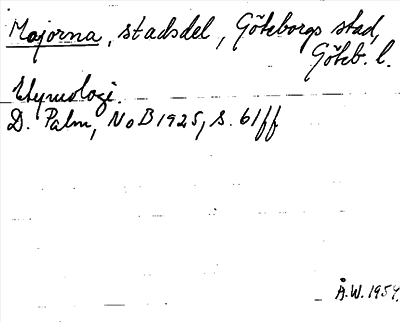 Majorna, stadsdel, Göteborgs stad,
Göteb. l.
Etymologi.
D. Palm, NoB 1925, s. 61ff
Å.W. 1954.